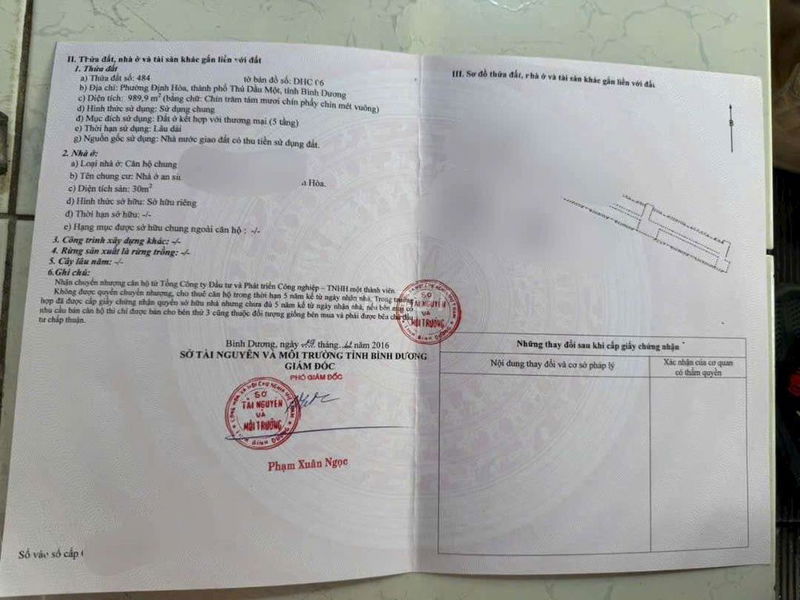 II. Thửa đất, nhà ở và tài sản khác gắn liền với đất
1. Thửa đất
a) Thửa đất số: 484 tờ bản đồ số: DHC 06
b) Địa chỉ: Phường Định Hòa, thành phố Thủ Dầu Một, tỉnh Bình Dương
c) Diện tích: 989,9 m² (bằng chữ: Chín trăm tám mươi chín phẩy chín mét vuông)
d) Hình thức sử dụng: Sử dụng chung
đ) Mục đích sử dụng: Đất ở kết hợp với thương mại (5 tầng)
e) Thời hạn sử dụng: Lâu dài
g) Nguồn gốc sử dụng: Nhà nước giao đất có thu tiền sử dụng đất.
2. Nhà ở:
a) Loại nhà ở: Căn hộ chung
b) Tên chung cư: Nhà ở an Hòa.
c) Diện tích sàn: 30m²
d) Hình thức sở hữu: Sở hữu riêng
đ) Thời hạn sở hữu: -/-
e) Hạng mục được sở hữu chung ngoài căn hộ : -/-
3. Công trình xây dựng khác: -/-
4. Rừng sản xuất là rừng trồng: -/-
5. Cây lâu năm: -/-
6. Ghi chú:
Nhận chuyển nhượng căn hộ từ Tổng Công ty Đầu tư và Phát triển Công nghiệp – TNHH một thành viên.
Không được quyền chuyển nhượng, cho thuê căn hộ trong thời hạn 5 năm kể từ ngày nhận nhà, Trong trường
hợp đã được cấp giấy chứng nhận quyền sở hữu nhà nhưng chưa đủ 5 năm kể từ ngày nhận nhà, nếu bên mua có
nhu cầu bán căn hộ thì chỉ được bán cho bên thứ 3 cũng thuộc đối tượng giống bên mua và phải được bên chủ đầu
tư chấp thuận.
Bình Dương, ngày tháng năm 2016
SỞ TÀI NGUYÊN VÀ MÔI TRƯỜNG TỈNH BÌNH DƯƠNG
GIÁM ĐỐC
PHÓ GIÁM ĐỐC
SỞ
TÀI NGUYÊN
VÀ
MÔI TRƯỜNG
TỈNH BÌNH DƯƠNG
Phạm Xuân Ngọc
Số vào sổ cấp
III. Sơ đồ thửa đất, nhà ở và tài sản khác gắn liền với đất
B
SỞ
TÀI NGUYÊN
VÀ
MÔI TRƯỜNG
Những thay đổi sau khi cấp giấy chứng nhận
Nội dung thay đổi và cơ sở pháp lý
Xác nhận của cơ quan
có thẩm quyền